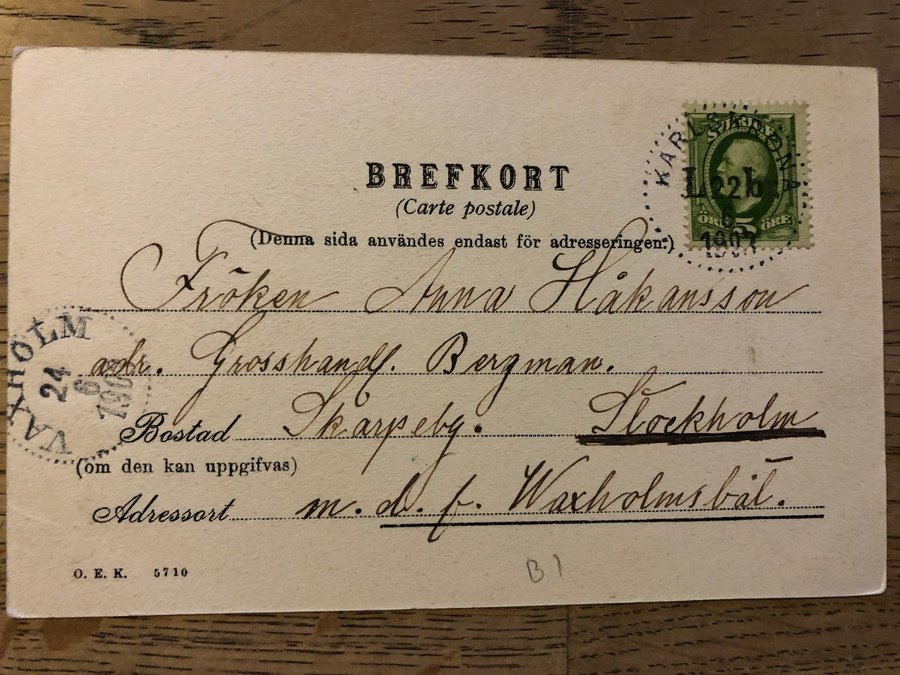 BREFKORT
(Carte postale)
(Denna sida användes endast för adresseringen.)
KARLSKRONA
22
1907
SVERIGE
5 ÖRE
Fröken Anna Håkansson
adr. Grosshandl. Bergman.
VAXHOLM
24
6
Bostad Skarpeby. Stockholm
(om den kan uppgifvas)
Adressort m. d. f. Waxholmsbåt.
O. E. K. 5710
B1